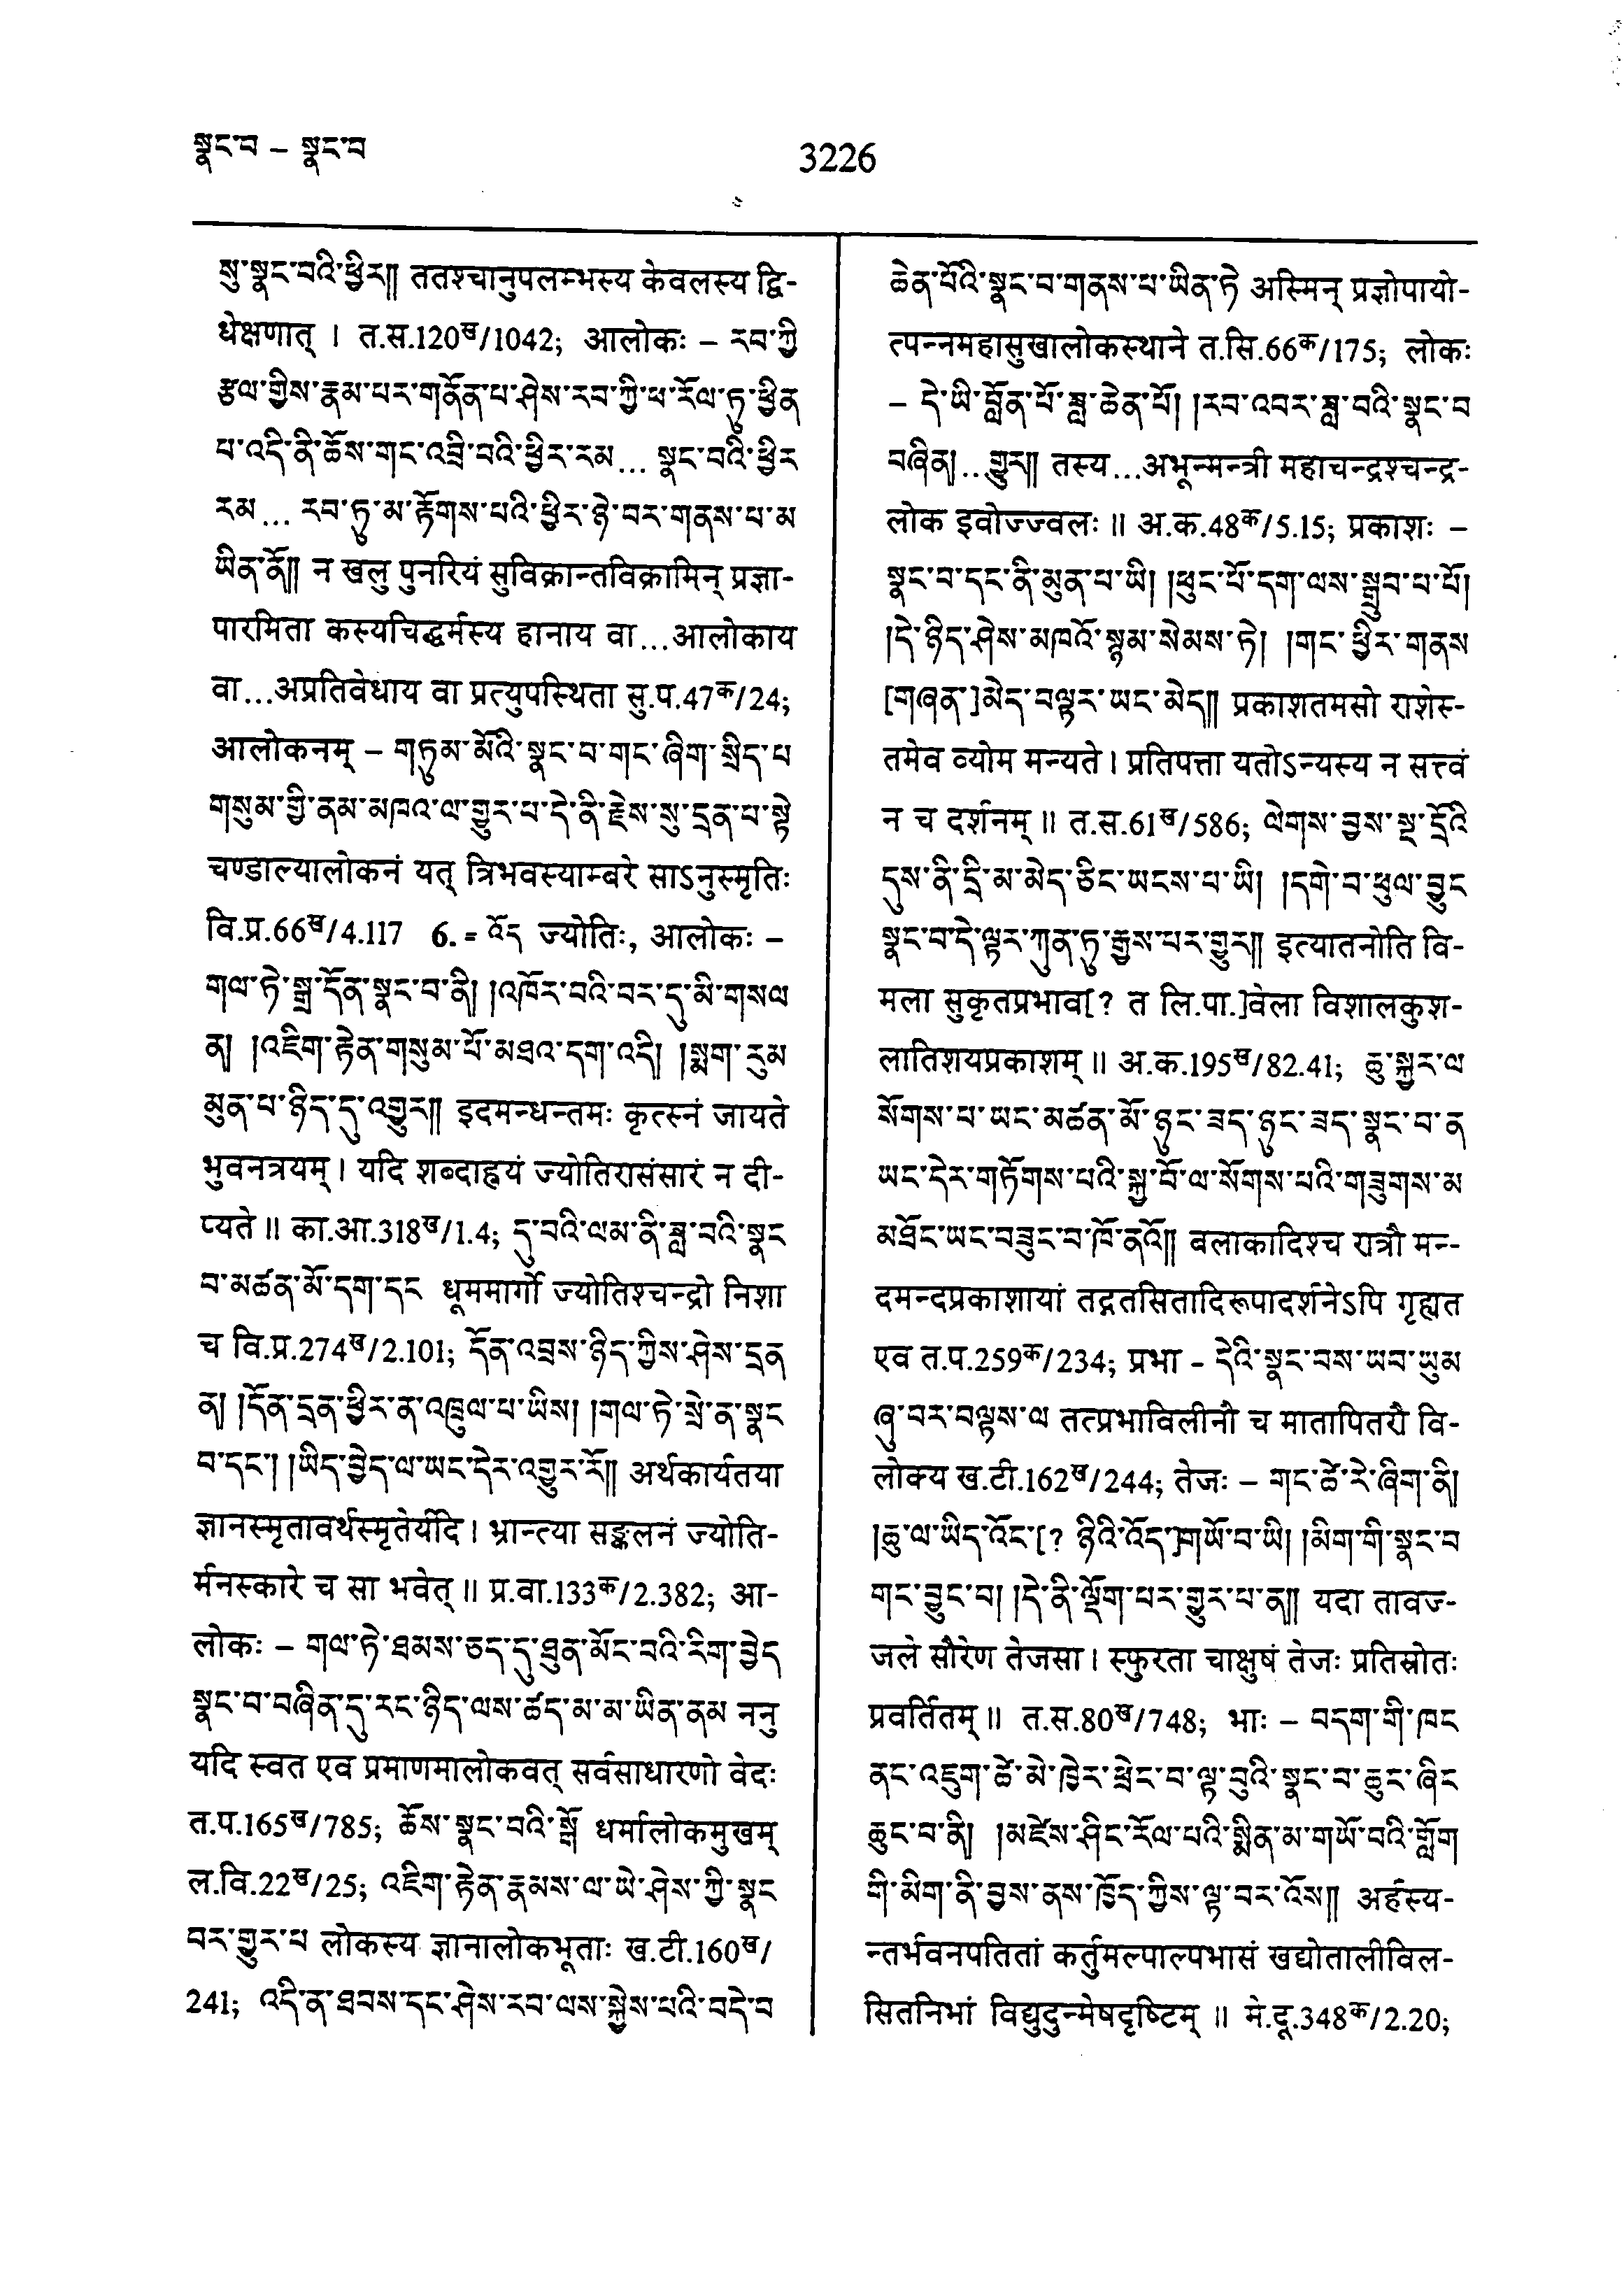 སྣང་བ – སྣང་བ
3226
སུ་སྣང་བའི་ཕྱིར།། ततश्चानुपलम्भस्य केवलस्य द्वि-
धेक्षणात् । त.स.120ख/1042; आलोकः – རབ་ཀྱི
རྩལ་གྱིས་རྣམ་པར་གནོན་པ་ཤེས་རབ་ཀྱི་ཕ་རོལ་ཏུ་ཕྱིན
པ་འདི་ནི་ཆོས་གང་འབྲི་བའི་ཕྱིར་རམ... སྣང་བའི་ཕྱིར
རམ... རབ་ཏུ་མ་རྟོགས་པའི་ཕྱིར་ཉེ་བར་གནས་པ་མ
ཡིན་ནོ།། न खलु पुनरियं सुविक्रान्तविक्रामिन् प्रज्ञा-
पारमिता कस्यचिद्धर्मस्य हानाय वा...आलोकाय
वा...अप्रतिवेधाय वा प्रत्युपस्थिता सु.प.47क/24;
आलोकनम् – གཏུམ་མོའི་སྣང་བ་གང་ཞིག་སྲིད་པ
གསུམ་གྱི་ནམ་མཁའ་ལ་གྱུར་པ་དེ་ནི་རྗེས་སུ་དྲན་པ་སྟེ
चण्डाल्यालोकनं यत् त्रिभवस्याम्बरे साऽनुस्मृतिः
वि.प्र.66ख/4.117 6. = འོད ज्योतिः, आलोकः –
གལ་ཏེ་སྒྲ་དོན་སྣང་བ་ནི། །འཁོར་བའི་བར་དུ་མི་གསལ
ན། །འཇིག་རྟེན་གསུམ་པོ་མཐའ་དག་འདི། །སྨག་རུམ
མུན་པ་ཉིད་དུ་འགྱུར།། इदमन्धन्तमः कृत्स्नं जायते
भुवनत्रयम् । यदि शब्दाह्वयं ज्योतिरासंसारं न दी-
प्यते ॥ का.आ.318ख/1.4; དུ་བའི་ལམ་ནི་ཟླ་བའི་སྣང
བ་མཚན་མོ་དག་དང धूममार्गो ज्योतिश्चन्द्रो निशा
च वि.प्र.274ख/2.101; དོན་འབྲས་ཉིད་ཀྱིས་ཤེས་དྲན
ན། །དོན་དྲན་ཕྱིར་ན་འཁྲུལ་པ་ཡིས། །གལ་ཏེ་སྲེ་ན་སྣང
བ་དང་། །ཡིད་བྱེད་ལ་ཡང་དེར་འགྱུར་རོ།། अर्थकार्यतया
ज्ञानस्मृतावर्थस्मृतेर्यदि । भ्रान्त्या सङ्कलनं ज्योति-
र्मनस्कारे च सा भवेत् ॥ प्र.वा.133क/2.382; आ-
लोकः – གལ་ཏེ་ཐམས་ཅད་དུ་ཐུན་མོང་བའི་རིག་བྱེད
སྣང་བ་བཞིན་དུ་རང་ཉིད་ལས་ཚད་མ་མ་ཡིན་ནམ ननु
यदि स्वत एव प्रमाणमालोकवत् सर्वसाधारणो वेदः
त.प.165ख/785; ཆོས་སྣང་བའི་སྒོ धर्मालोकमुखम्
ल.वि.22ख/25; འཇིག་རྟེན་རྣམས་ལ་ཡེ་ཤེས་ཀྱི་སྣང
བར་གྱུར་པ लोकस्य ज्ञानालोकभूताः ख.टी.160ख/
241; འདི་ན་ཐབས་དང་ཤེས་རབ་ལས་སྐྱེས་པའི་བདེ་བ
ཆེན་པོའི་སྣང་བ་གནས་པ་ཡིན་ཏེ अस्मिन् प्रज्ञोपायो-
त्पन्नमहासुखालोकस्थाने त.सि.66क/175; लोकः
– དེ་ཡི་བློན་པོ་ཟླ་ཆེན་པོ། །རབ་འབར་ཟླ་བའི་སྣང་བ
བཞིན།...གྱུར།། तस्य...अभून्मन्त्री महाचन्द्रश्चन्द्र-
लोक इवोज्ज्वलः ॥ अ.क.48क/5.15; प्रकाशः –
སྣང་བ་དང་ནི་མུན་པ་ཡི། །ཕུང་པོ་དག་ལས་སྒྲུབ་པ་པོ།
།དེ་ཉིད་ཤེས་མཁའོ་སྙམ་སེམས་ཏེ། །གང་ཕྱིར་གནས
[གཞན་]མེད་བལྟར་ཡང་མེད།། प्रकाशतमसो राशेस्-
तमेव व्योम मन्यते । प्रतिपत्ता यतोऽन्यस्य न सत्त्वं
न च दर्शनम् ॥ त.स.61ख/586; ལེགས་བྱས་སྔ་དྲོའི
དུས་ནི་དྲི་མ་མེད་ཅིང་ཡངས་པ་ཡི། །དགེ་བ་ཕུལ་བྱུང
སྣང་བ་དེ་ལྟར་ཀུན་ཏུ་རྒྱས་པར་གྱུར།། इत्यातनोति वि-
मला सुकृतप्रभाव[? त लि.पा.]वेला विशालकुश-
लातिशयप्रकाशम् ॥ अ.क.195ख/82.41; ཆུ་སྐྱར་ལ
སོགས་པ་ཡང་མཚན་མོ་ཉུང་ཟད་ཉུང་ཟད་སྣང་བ་ན
ཡང་དེར་གཏོགས་པའི་སྐྱ་བོ་ལ་སོགས་པའི་གཟུགས་མ
མཐོང་ཡང་བཟུང་བ་ཁོ་ནའོ།། बलाकादिश्च रात्रौ मन्-
दमन्दप्रकाशायां तद्गतसितादिरूपादर्शनेऽपि गृह्यत
एव त.प.259क/234; प्रभा – དེའི་སྣང་བས་ཡབ་ཡུམ
ཞུ་བར་བལྟས་ལ तत्प्रभाविलीनौ च मातापितरौ वि-
लोक्य ख.टी.162ख/244; तेजः – གང་ཚེ་རེ་ཞིག་ནི།
།ཆུ་ལ་ཡིད་འོང་[? ཉིའི་འོད་]གཡོ་བ་ཡི། །མིག་གི་སྣང་བ
གང་བྱུང་བ། །དེ་ནི་ལྡོག་པར་གྱུར་པ་ན།། यदा तावज्-
जले सौरेण तेजसा । स्फुरता चाक्षुषं तेजः प्रतिस्रोतः
प्रवर्तितम् ॥ त.स.80ख/748; भाः – བདག་གི་ཁང
ནང་འཇུག་ཚེ་མེ་ཁྱེར་ཕྲེང་བ་ལྟ་བུའི་སྣང་བ་ཆུང་ཞིང
ཆུང་བ་ནི། །མཛེས་ཤིང་རོལ་པའི་སྨིན་མ་གཡོ་བའི་གློག
གི་མིག་ནི་བྱས་ནས་ཁྱོད་ཀྱིས་ལྟ་བར་འོས།། अर्हस्य-
न्तर्भवनपतितां कर्तुमल्पाल्पभासं खद्योतालीविल-
सितनिभां विद्युदुन्मेषदृष्टिम् ॥ मे.दू.348क/2.20;